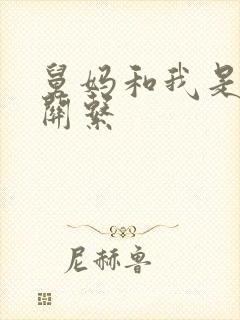 舅妈和我是
關繫
尼赫鲁